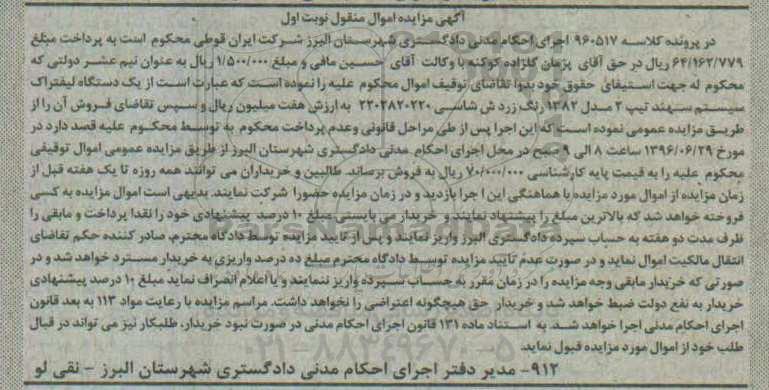 آگهی مزایده اموال منقول نوبت اول
در پرونده کلاسه ۹۶۰۵۱۷ اجرای احکام مدنی دادگستری شهرستان البرز شرکت ایران قوطی محکوم است به پرداخت مبلغ
۶۴/۱۶۲/۷۷۹ ریال در حق آقای پژمان گلزاده کوکنه با وکالت آقای حسین مافی و مبلغ ۱/۵۰۰/۰۰۰ ریال به عنوان نیم عشر دولتی که
محکوم له جهت استیفای حقوق خود بدوا تقاضای توقیف اموال محکوم علیه را نموده است که عبارت است از یک دستگاه لیفتراک
سیستم سهند تیپ ۲ مدل ۱۳۸۲ رنگ زرد ش شاسی ۲۲۰۲۸۲۰۲۲۰ به ارزش هفت میلیون ریال و سپس تقاضای فروش آن را از
طریق مزایده عمومی نموده است که این اجرا پس از طی مراحل قانونی وعدم پرداخت محکوم به توسط محکوم علیه قصد دارد در
مورخ ۱۳۹۶/۰۶/۲۹ ساعت ۸ الی ۹ صبح در محل اجرای احکام مدنی دادگستری شهرستان البرز از طریق مزایده عمومی اموال توقیفی
محکوم علیه را به قیمت پایه کارشناسی ۷۰/۰۰۰/۰۰۰ ریال به فروش برساند. طالبین و خریداران می توانند همه روزه تا یک هفته قبل از
زمان مزایده از اموال مورد مزایده با هماهنگی این اجرا بازدید و در زمان مزایده حضورا شرکت نمایند. بدیهی است اموال مزایده به کسی
فروخته خواهد شد که بالاترین مبلغ را پیشنهاد نمایند و خریدار می بایستی مبلغ ۱۰ درصد پیشنهادی خود را نقدا پرداخت و مابقی را
ظرف مدت دو هفته به حساب سپرده دادگستری البرز واریز نمایند و پس از تایید مزایده توسط دادگاه محترم، صادر کننده حکم تقاضای
انتقال مالکیت اموال نماید و در صورت عدم تایید مزایده توسط دادگاه محترم مبلغ ده درصد واریزی به خریدار مسترد خواهد شد و در
صورتی که خریدار مابقی وجه مزایده را در زمان مقرر به حساب سپرده واریز ننمایند و یا اعلام انصراف نماید مبلغ ۱۰ درصد پیشنهادی
خریدار به نفع دولت ضبط خواهد شد و خریدار حق هیچگونه اعتراضی را نخواهد داشت. مراسم مزایده با رعایت مواد ۱۱۳ به بعد قانون
اجرای احکام مدنی اجرا خواهد شد. به استناد ماده ۱۳۱ قانون اجرای احکام مدنی در صورت نبود خریدار، طلبکار نیز می تواند در قبال
طلب خود از اموال مورد مزایده قبول نماید.
۹۱۲- مدیر دفتر اجرای احکام مدنی دادگستری شهرستان البرز - نقی لو
ParsNamadData
۰۲۱-۸۸۳۴۹۶۷۰-۵